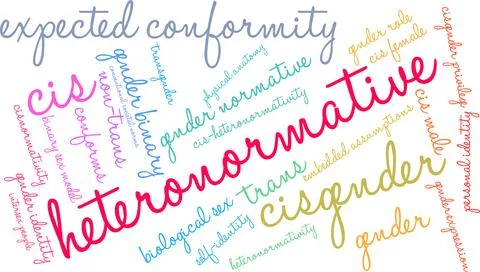 expected conformity
cis
non-trans
conforms
gender binary
transgender
gender normative
physical anatomy
cis-heteronormativity
gender role
cis female
cisgender privilege
heteronormative
cisnormativity
binary sex model
gender identity
intersex people
biological sex
self-identity
trans
heteronormativity
embedded assumptions
cisgender
cis male
personal identity
gender expression
gender